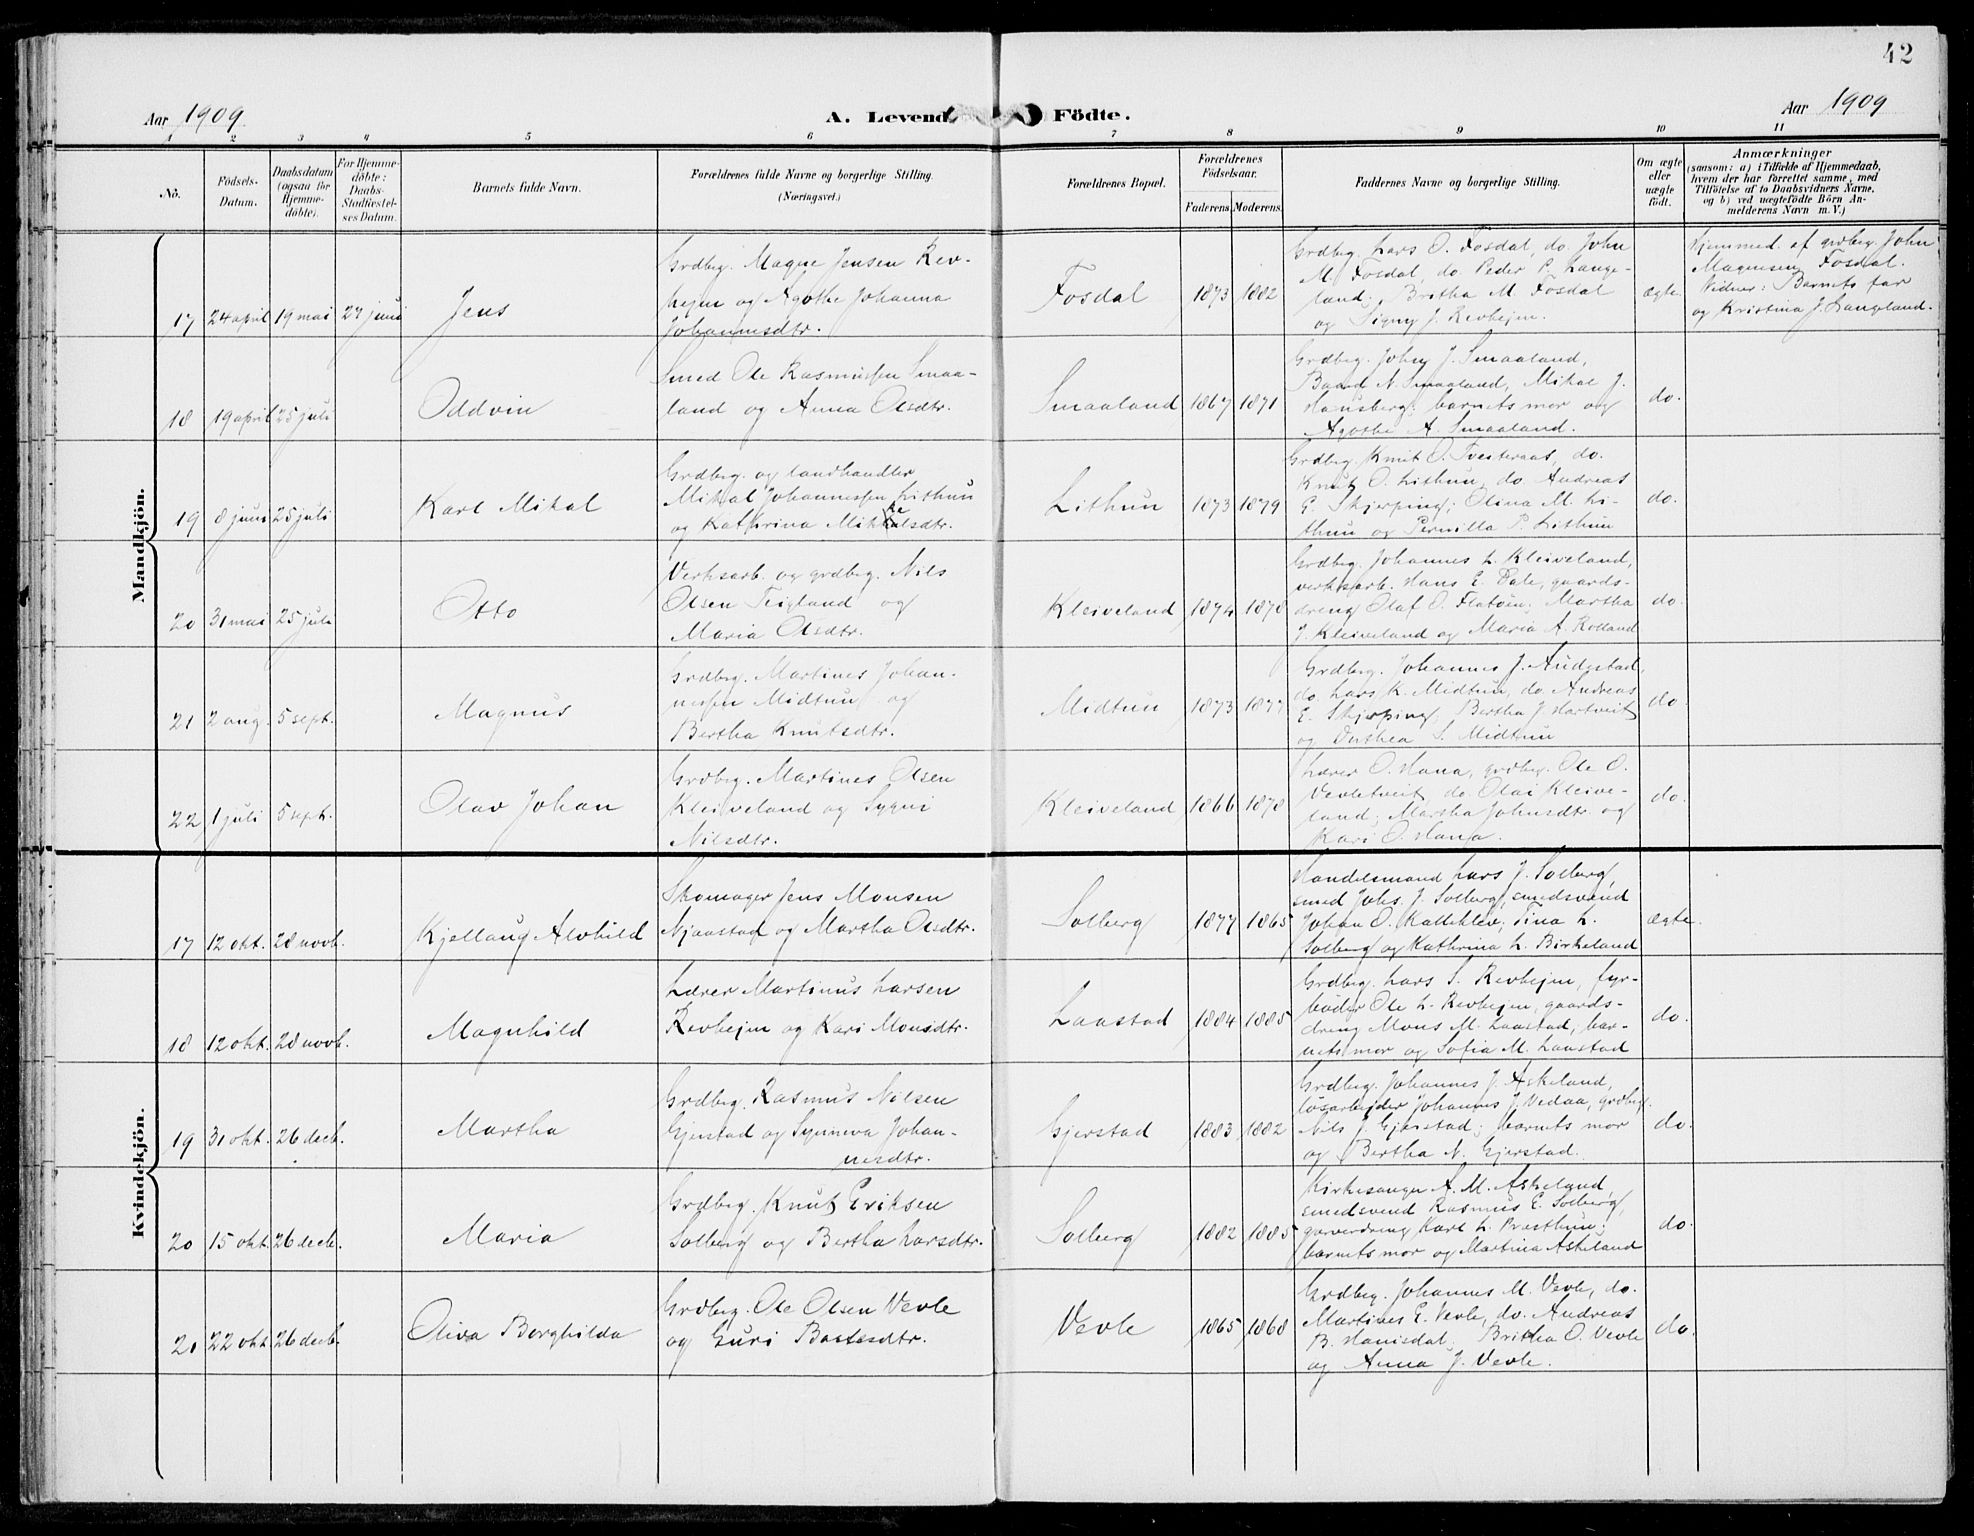 42
Aar 1909
A. Levende Födte.
Aar 1909
1 2 3 4 5 6 7 8 9 10 11
No.
Födsels-
Datum.
Daabsdatum
(ogsaa for
Hjemme-
döbte).
For Hjemme-
döbte:
Daabs-
Stadfæstel-
ses Datum.
Barnets fulde Navn.
Forældrenes fulde Navne og borgerlige Stilling.
(Næringsvei.)
Forældrenes Bopæl.
Forældrenes
Födselsaar.
Faderens. Moderens.
Faddernes Navne og borgerlige Stilling.
Om ægte
eller
uægte
født.
Anmærkninger
(saasom: a) i Tilfælde af Hjemmedaab,
hvem der har forrettet samme, med
Tilföielse af to Daabsvidners Navne,
og b) ved uægtefödte Börn An-
melderens Navn m. V.)
Mandkjön.
17 24 april 19 mai 27 juni
Jens
Grdbrg. Magne Jensen Rev-
hejm og Agothe Johanna
Johannesdtr.
Fosdal
1873 1882
Grdbrg. Lars O. Fosdal, do. John
M. Fosdal, do Peder P. Lange-
land; Britha M. Fosdal
og Signy J. Revhejm.
ægte
Hjemmed. af grdbrg. John
Magnesen Fosdal.
Vidner: Barnets far
og Kristina J. Langeland.
18 19 april 25 juli
Oddvin
Smed Ole Rasmussen Smaa-
land og Anna Olsdtr.
Smaaland
1867 1871
Grdbrg. John J. Smaaland,
Baard N. Smaaland, Mikal J.
Hausberg; barnets mor og
Agothe A. Smaaland.
do.
19 8 juni 25 juli
Karl Mikal
Grdbrg. og landhandler
Mikal Johannessen Lithun
og Kathrina Mikkelsdtr.
Lithun
1873 1879
Grdbrg. Knut O. Tveiteraas, do.
Knut O. Lithun, do Andreas
E. Skjerping; Olina M. Li-
thun og Pernilla P. Lithun
do.
20 31 mai 25 juli
Otto
Verksarb. og grdbrg. Nils
Olsen Teigland og
Maria Olsdtr.
Kleiveland
1874 1878
Grdbrg. Johannes L. Kleiveland,
verksarb. Hans E. Dale, gaards-
dreng Olaf O. Flatöen; Martha
J. Kleiveland og Maria A. Rolland
do.
21 2 aug. 5 sept.
Magnus
Grdbrg. Martines Johan-
nessen Midtun og
Bertha Knutsdtr.
Midtun
1873 1877
Grdbrg. Johannes J. Audestad,
do. Lars K. Midtun, do. Andreas
E. Skjerping; Bertha J. Hartveit
og Dorthea S. Midtun
do.
22 1 juli 5 sept.
Olav Johan
Grdbrg. Martines Olsen
Kleiveland og Sygni
Nilsdtr.
Kleiveland
1866 1878
Lærer O. Hana, grdbrg. Ole O.
Vevletveit, do. Olai Kleive-
land; Martha Johnsdtr. og
Kari O. Hana.
do.
Kvindekjön.
17 12 okt. 28 novb.
Kjellaug Alvhild
Skomager Jens Monsen
Njaastad og Martha Olsdtr.
Solberg
1877 1865
Handelsmand Lars J. Solberg,
smed Johs. J. Solberg, smedsvend
Johan O. Kattehlev; Tina L.
Solberg og Kathrina L. Birkeland
ægte.
18 12 okt. 28 novb.
Magnhild
Lærer Martinus Larsen
Revhejm og Kari Monsdtr.
Laastad
1884 1885
Grdbrg. Lars S. Revhejm, fyr-
böder Ole L. Revhejm, gaards-
dreng Mons M. Laastad, bar-
nets mor og Sofia M. Laastad
do.
19 31 okt. 26 decb.
Martha
Grdbrg. Rasmus Nilsen
Gjerstad og Synneva Johan-
nesdtr.
Gjerstad
1883 1882
Grdbrg. Johannes J. Askeland,
lösarbejder Johannes J. Vedaa, grdbrg.
Nils J. Gjerstad; barnets mor
og Bertha N. Gjerstad.
do.
20 15 okt. 26 decb.
Maria
Grdbrg. Knut Eriksen
Solberg og Bertha Larsdtr.
Solberg
1882 1885
Kirkesanger A. M. Askeland,
smedsvend Rasmus E. Solberg,
garverdreng Karl L. Presthun;
barnets mor og Martina Askeland
do.
21 22 okt. 26 decb.
Oliva Borghilda
Grdbrg. Ole Olsen Vevle
og Guri Baatesdtr.
Vevle
1865 1868
Grdbrg. Johannes M. Vevle, do.
Martines E. Vevle, do. Andreas
B. Hanisdal; Britha O. Vevle
og Anna J. Vevle.
do.